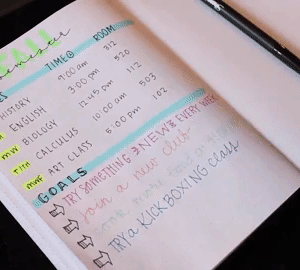 semester
TIME@ ROOM
HISTORY 9:00 am 312
ENGLISH 3:00 pm 520
MW BIOLOGY 12:45 pm 112
T/TH CALCULUS 10:00 am 503
MWF ART CLASS 5:00 pm 102
GOALS
TRY SOMETHING NEW EVERY WEEK
Join a new club
cook more
TRY a KICKBOXING class